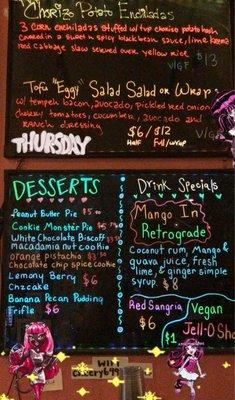 Chorizo Potato Enchiladas
3 corn enchiladas stuffed w/ tvp chorizo potato hash
covered in a sweet n spicy black bean sauce, lime krema
red cabbage slaw served over yellow rice
V/GF $13
Tofu "Eggy" Salad Salad or Wrap
w/ tempeh bacon, avocado, pickled red onion
cherry tomatoes, cucumbers, avocado and
RANCH dressing
$6 / $12
V/GF
Half Full/wrap
THURSDAY
DESSERTS
Peanut Butter Pie $5.00
Cookie Monster Pie
White Chocolate Biscoff
macadamia nut cookie
orange pistachio $3.50
Chocolate chip spice cookie
Lemony Berry
Chzcake $6
Banana Pecan Pudding
Trifle $6
Drink Specials
Mango In
Retrograde
Coconut rum, Mango &
guava juice, fresh
lime, & ginger simple
syrup. $8
Red Sangria
$6
Vegan
Jell-O Sho
$1
WIFI